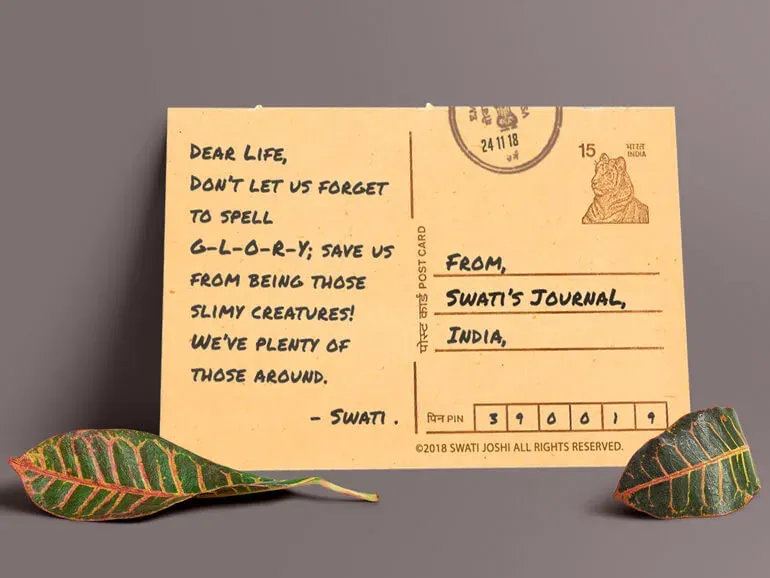 DEAR LIFE,
DON'T LET US FORGET
TO SPELL
G-L-O-R-Y; SAVE US
FROM BEING THOSE
SLIMY CREATURES!
WE'VE PLENTY OF
THOSE AROUND.
- SWATI .
24 11 18
15
भारत
INDIA
पोस्ट कार्ड POST CARD
FROM,
SWATI'S JOURNAL,
INDIA,
पिन PIN 3 9 0 0 1 9
©2018 SWATI JOSHI ALL RIGHTS RESERVED.